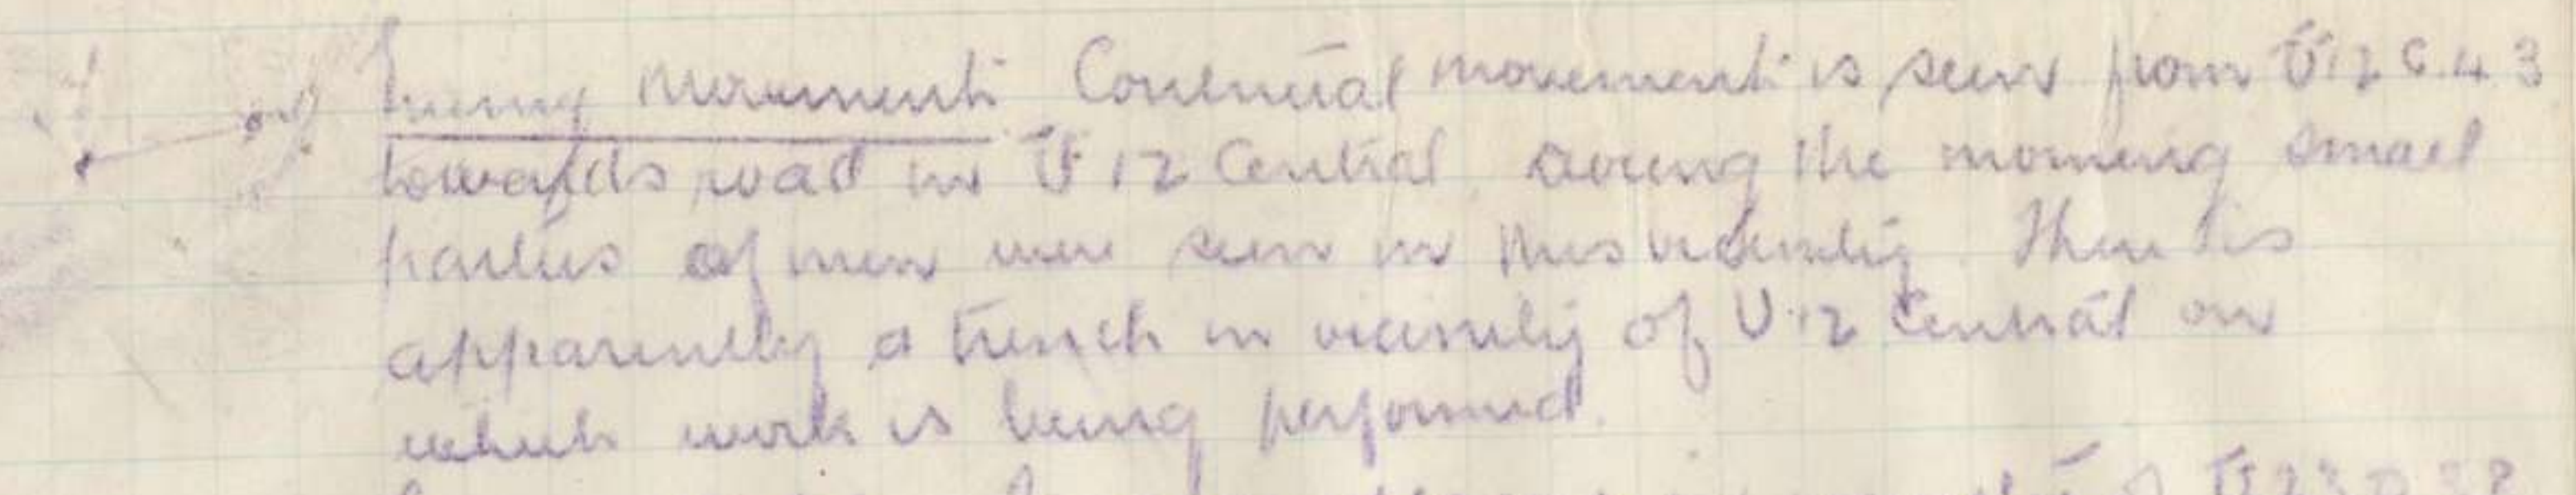 Enemy Movement Continual movement is seen from U12 C.4 3
towards road in U 12 Central. During the morning small
parties of men were seen in this vicinity. There is
apparently a trench in vicinity of U.12 Central on
which work is being performed.